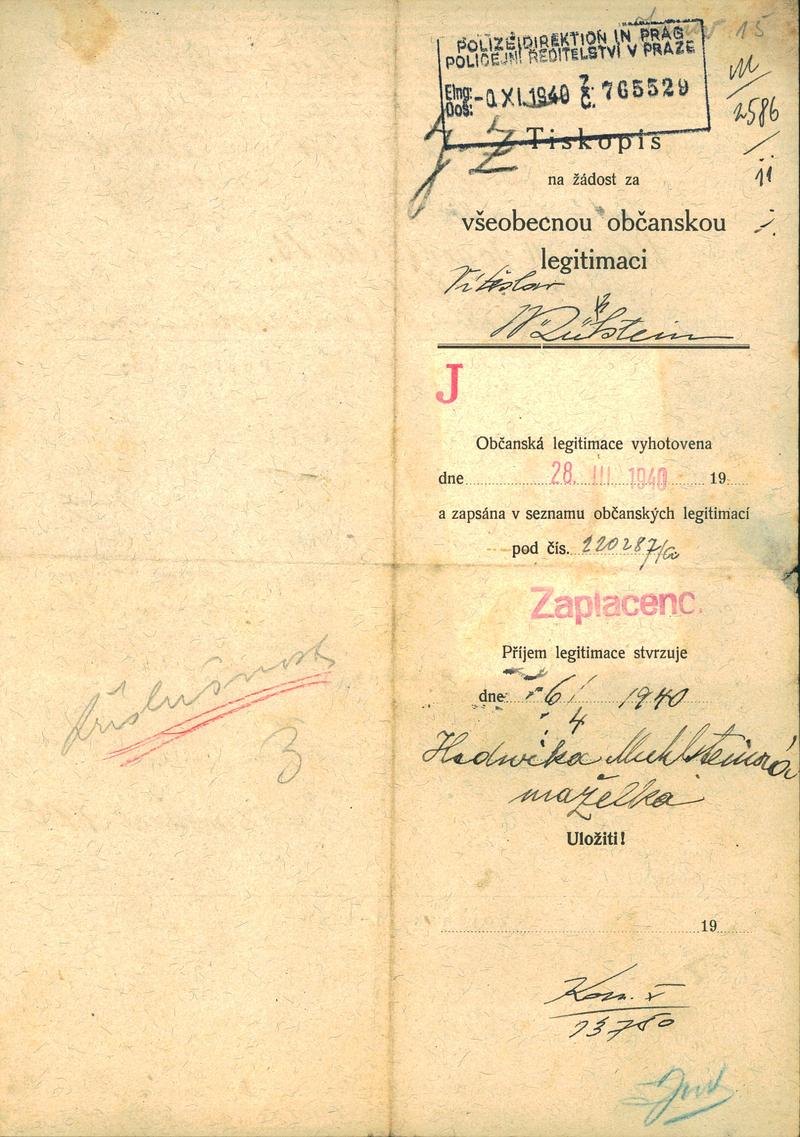 POLIZEIDIREKTION IN PRAG
POLICEJNÍ ŘEDITELSTVÍ V PRAZE
Eing:
Doš: -9.XI.1940 Z. Č. 765529
15
M
2586
Tiskopis
na žádost za
všeobecnou občanskou
legitimaci
Vítěslav
Mühlstein
J
Občanská legitimace vyhotovena
dne 28. III. 1940 19
a zapsána v seznamu občanských legitimací
pod čís. 220287/a
Zaplaceno.
Příjem legitimace stvrzuje
dne 6/4 1940
Hedwika Muhlsteinová
manželka
Uložiti!
19
Příslušnost
3
Kom. V
13750